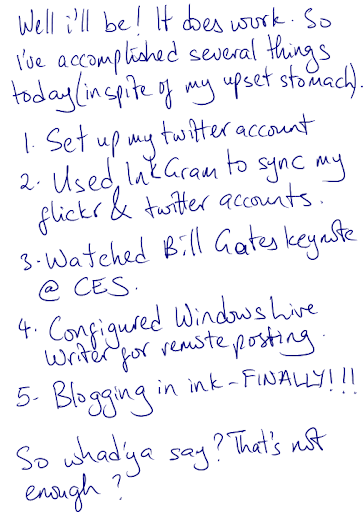 Well i'll be! It does work. So
i've accomplished several things
today (inspite of my upset stomach).
1. Set up my twitter account
2. Used InkGram to sync my
flickr & twitter accounts.
3. Watched Bill Gates keynote
@ CES.
4. Configured Windows Live
Writer for remote posting.
5- Blogging in ink - FINALLY!!!
So whad'ya say? That's not
enough?